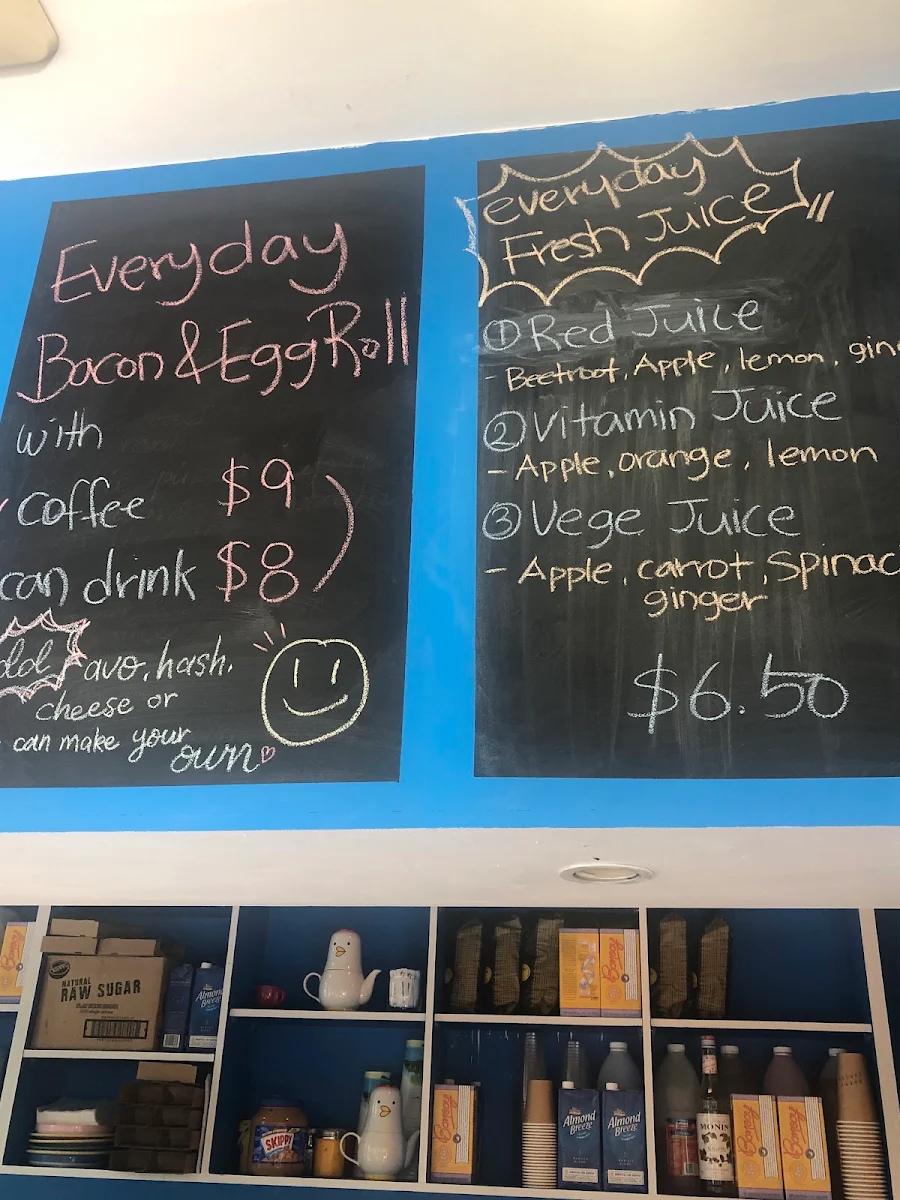 Everyday
Bacon & Egg Roll
with
coffee $9
can drink $8
avo, hash,
cheese or
can make your
own
everyday
Fresh Juice
① Red Juice
- Beetroot, Apple, lemon, gin
② Vitamin Juice
- Apple, orange, lemon
③ Vege Juice
- Apple, carrot, Spinac
ginger
$6.50
NATURAL
RAW SUGAR
Almond
Breeze
Bonsoy
SKIPPY
Bonsoy
Almond
Breeze
Almond
Breeze
MONIN
Bonsoy
Bonsoy